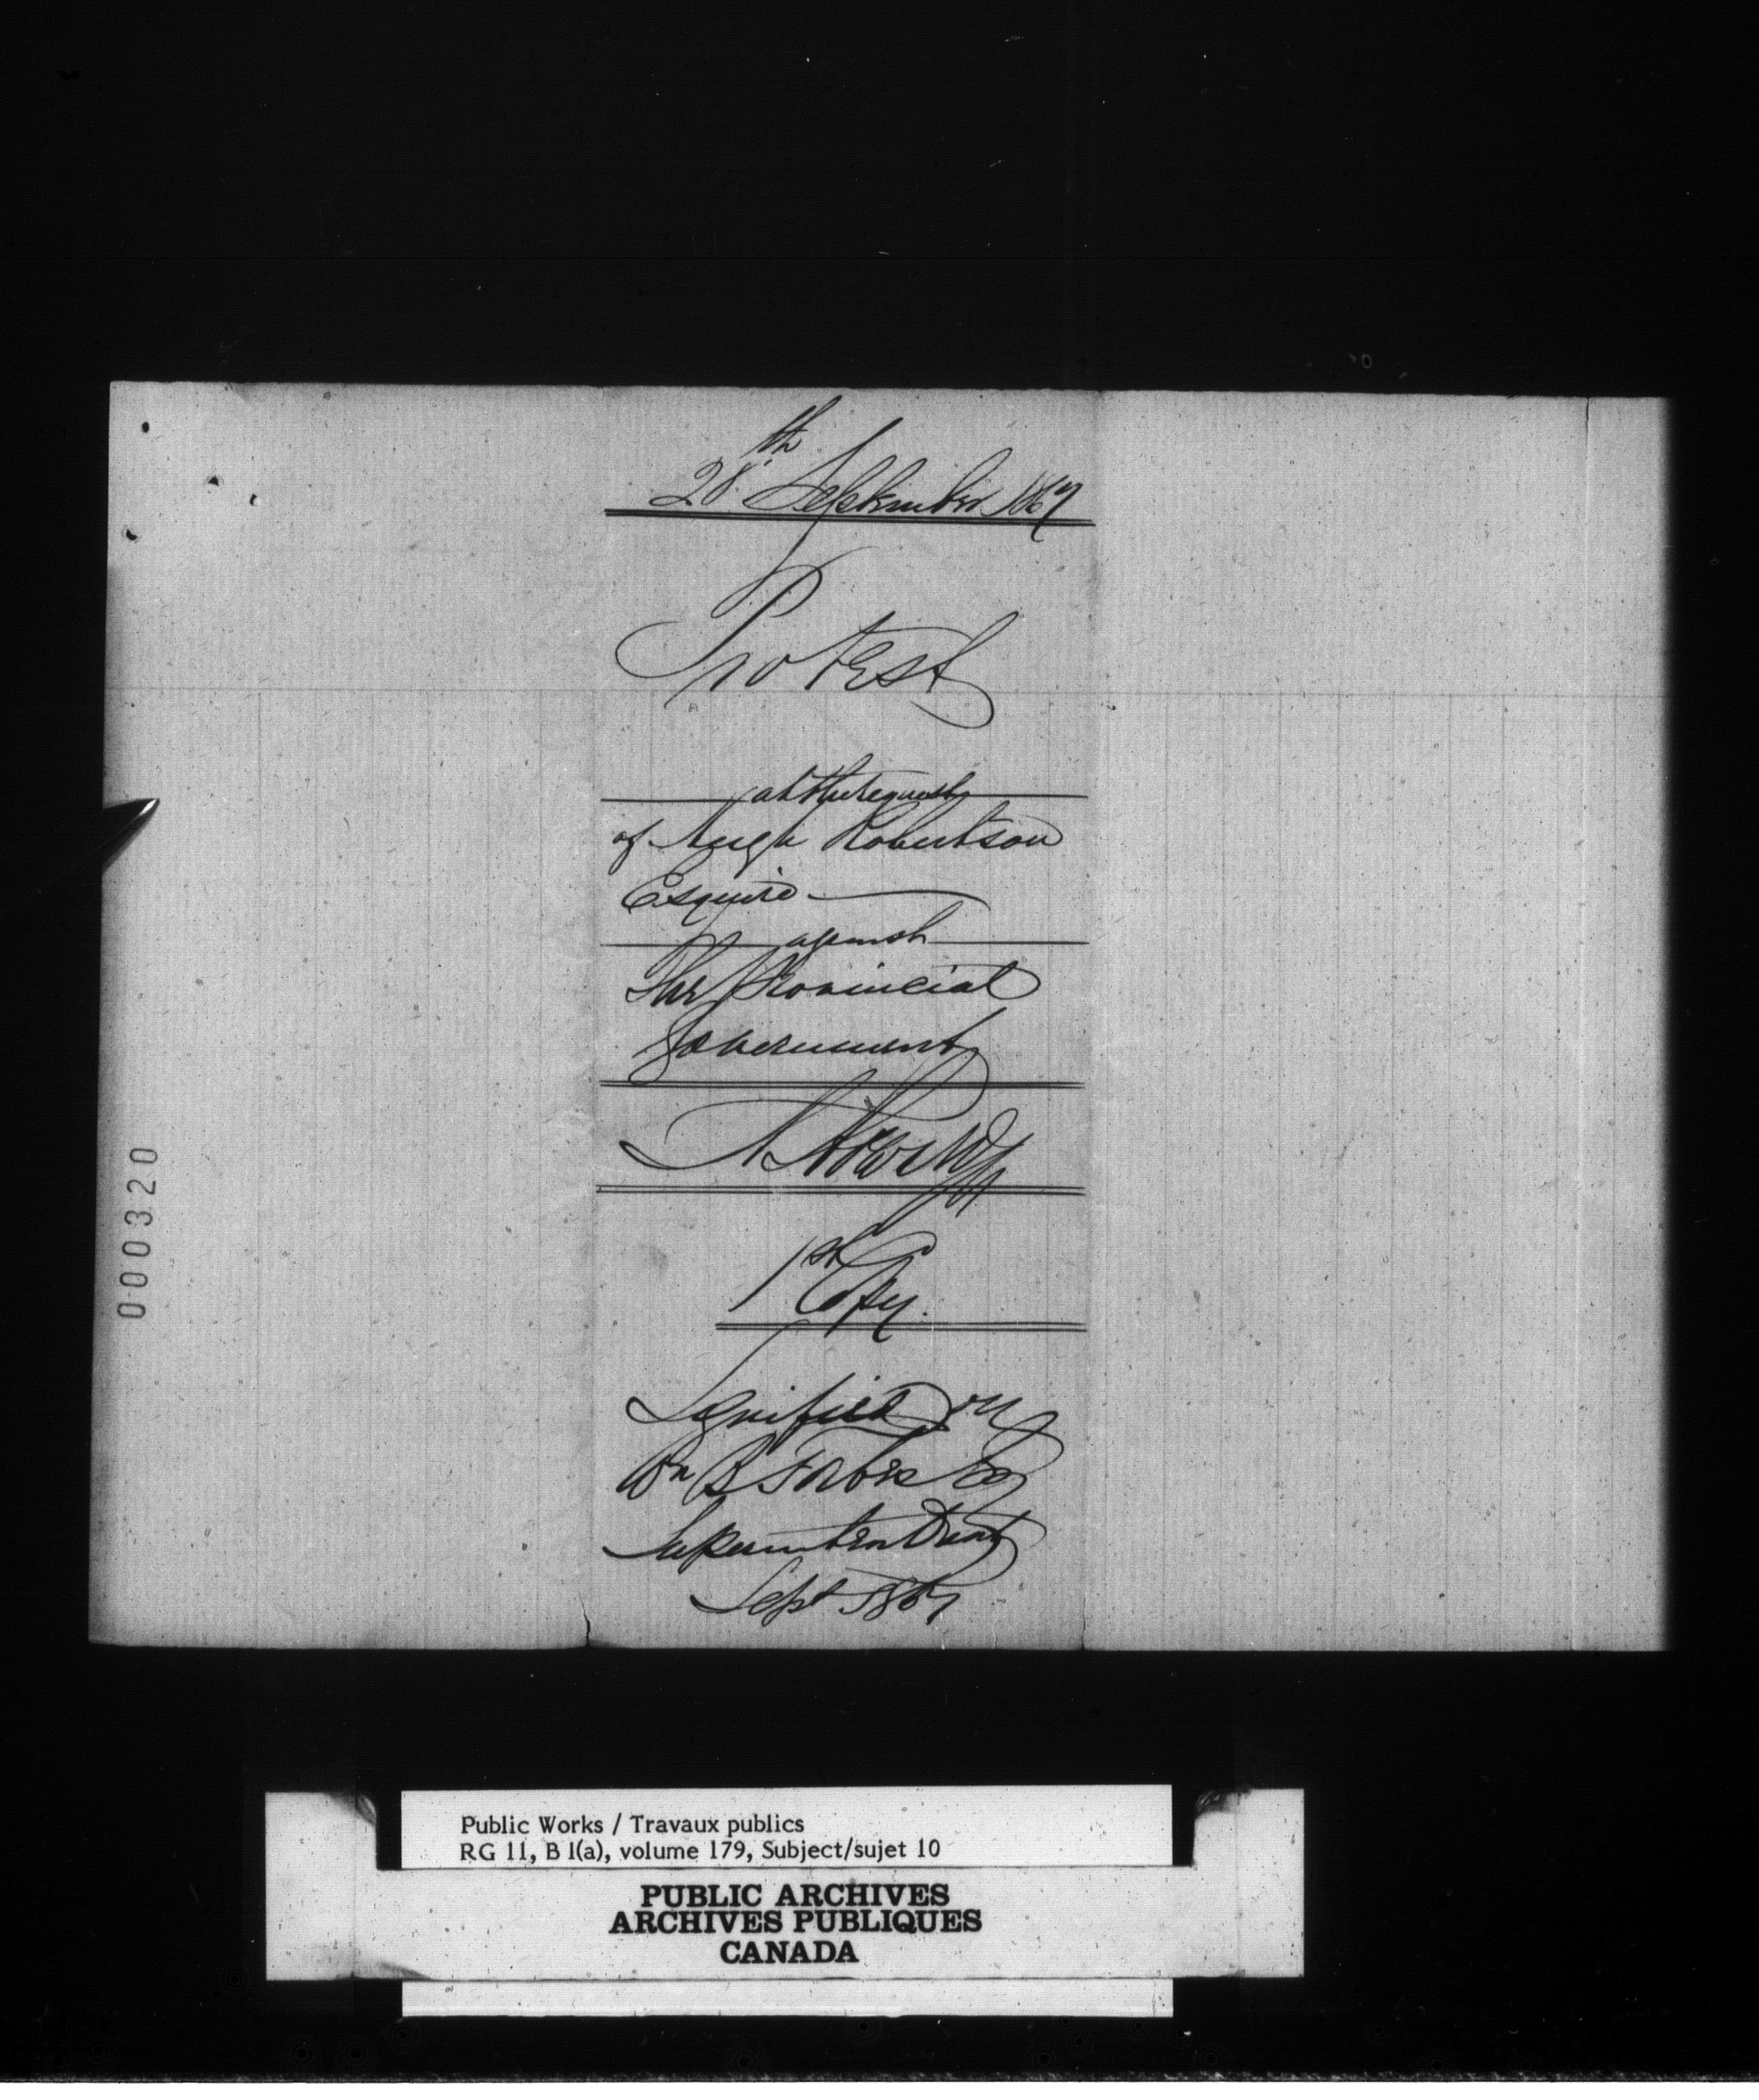 28th September 1867
Protest
at the request
of Hugh Robertson
Esquire
against
The Provincial
Government
1st Copy.
Signified on
B Forbes Esq
Superintendent
Sept 1867
000320
Public Works / Travaux publics
RG 11, B 1(a), volume 179, Subject/sujet 10
PUBLIC ARCHIVES
ARCHIVES PUBLIQUES
CANADA